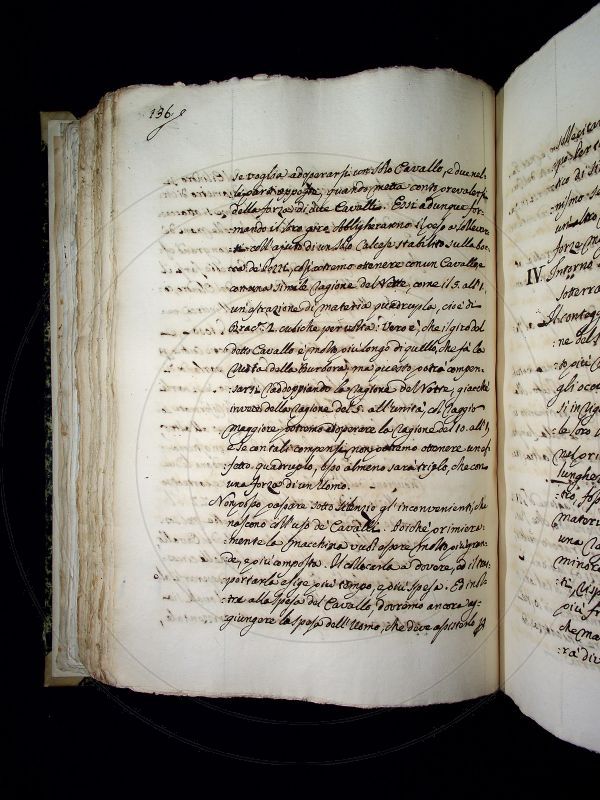 136
se voglia adoperarsi un solo Cavallo, e due nel-
le parti opposte, quando metta conto prevalersi
della forza di due Cavalli. Essi adunque for-
mando il loro giro obbligheranno il peso a sollevar-
si coll'ajuto di un solo Calcese stabilito sulla boc-
ca de' Pozzi, e così potremo ottenere con un Cavallo, e
con una simile ragione del Vette, come il 5. all'1.
un'estrazione di materia quadrupla, cioè di
Brac.ª 2. cubiche per volta. Vero è, che il giro del
detto Cavallo è molto più longo di quello, che fà la
Ruota della Burbora, ma questo potrà compen-
sarsi raddoppiando la ragione del Vette, giacchè
invece della ragione del 5. all'unità, col raggio
maggiore potremo adoperare la ragione del 10. all'1,
e se con tali compensi non potremo ottenere un ef-
fetto quadruplo, esso almeno sarà triplo, che con
una forza di un Uomo.
Non posso passare sotto silenzio gl'inconvenienti, che
nascono coll'uso de' Cavalli. Poichè primiera-
mente la macchina vuol essere molto più gran-
de, e più composta. Il collocarla a dovere, ed il tras-
portarla esige più tempo, e più spesa. Ed inol-
tre alla spesa del Cavallo dovremo ancora ag-
giungere la spesa dell'Uomo, che deve assistere
IV. Intorno
sotterra
Il conteg
:ne del
to più
gli occo
si in
la loro
nel pri
lunghe
:tro, fo
materi
una
minore
più
che ma
:rà di